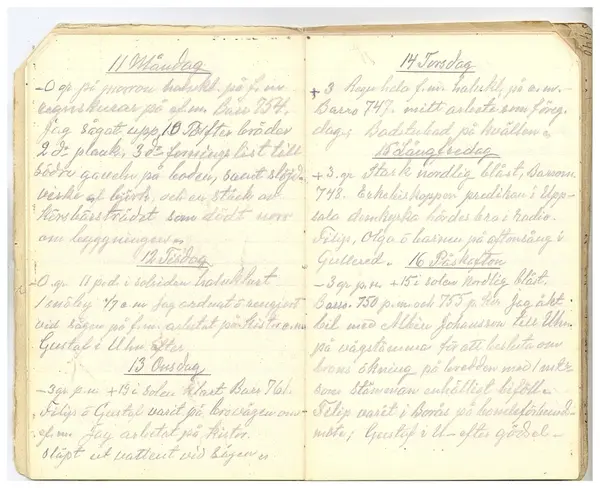 11 Måndag
-0 gr. på morron halvkl. på f.m.
regnskurar på e.m. Baro 754.
Jag sågat upp 10 Böfter bräder
2 do plank, 3 do list till
södra gaveln på boden, samt slöjd
virke af björk, och en stock av
körsbärsträdet som dödt norr
om byggningen.
12 Tisdag
-0 gr. 11 p.m. i solsidan halvklart
1 snöby a m Jag ordnat o rengjort
vid sågen på f.m. arbetat på
Gustaf i Ulvn efter
13 Onsdag
-3 gr. p.m. +13 i solen klart Baro 761.
Filip o Gustaf varit på brovägen om
e.m. Jag arbetat på kistor.
släpt ut vattnet vid Sågen
14 Torsdag
+3 Regn hela f.m. halvkl. på e.m.
Baro 747. mitt arbete som föreg.
dag; Badstubad på kvällen.
15 Långfredag
+3. gr. Stark nordlig blåst, Barom.
748. Erkebiskoppen predikan i Upp-
sala domkyrka hördes bra i radio.
Filip, Olga o barnen på aftonsång i
Gullered. 16 Påskafton
-3 gr. p.m. +15 i solen nordlig blåst.
Baro. 750 p.m. och 753 p. Jag åkt
bil med Albin Johansson
på vägstämma för att besluta om
brons ökning på bredden med 1 mtr
som stämman enhälligt biföll.
Filip varit i Borås på
möte; Gustaf i U- efter gödsel-